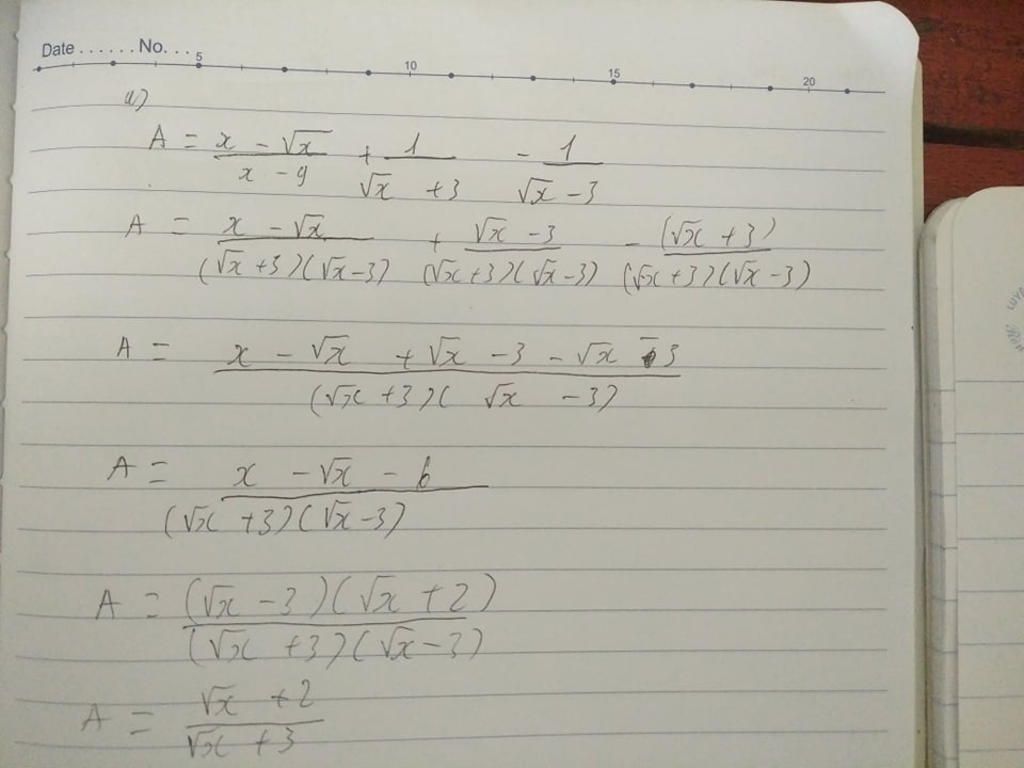 Date ...... No. ...
5 10 15 20
a)
A = (x - √x)/(x - 9) + 1/(√x + 3) - 1/(√x - 3)
A = (x - √x)/((√x + 3)(√x - 3)) + (√x - 3)/((√x + 3)(√x - 3)) - (√x + 3)/((√x + 3)(√x - 3))
A = (x - √x + √x - 3 - √x - 3)/((√x + 3)(√x - 3))
A = (x - √x - 6)/((√x + 3)(√x - 3))
A = ((√x - 3)(√x + 2))/((√x + 3)(√x - 3))
A = (√x + 2)/(√x + 3)